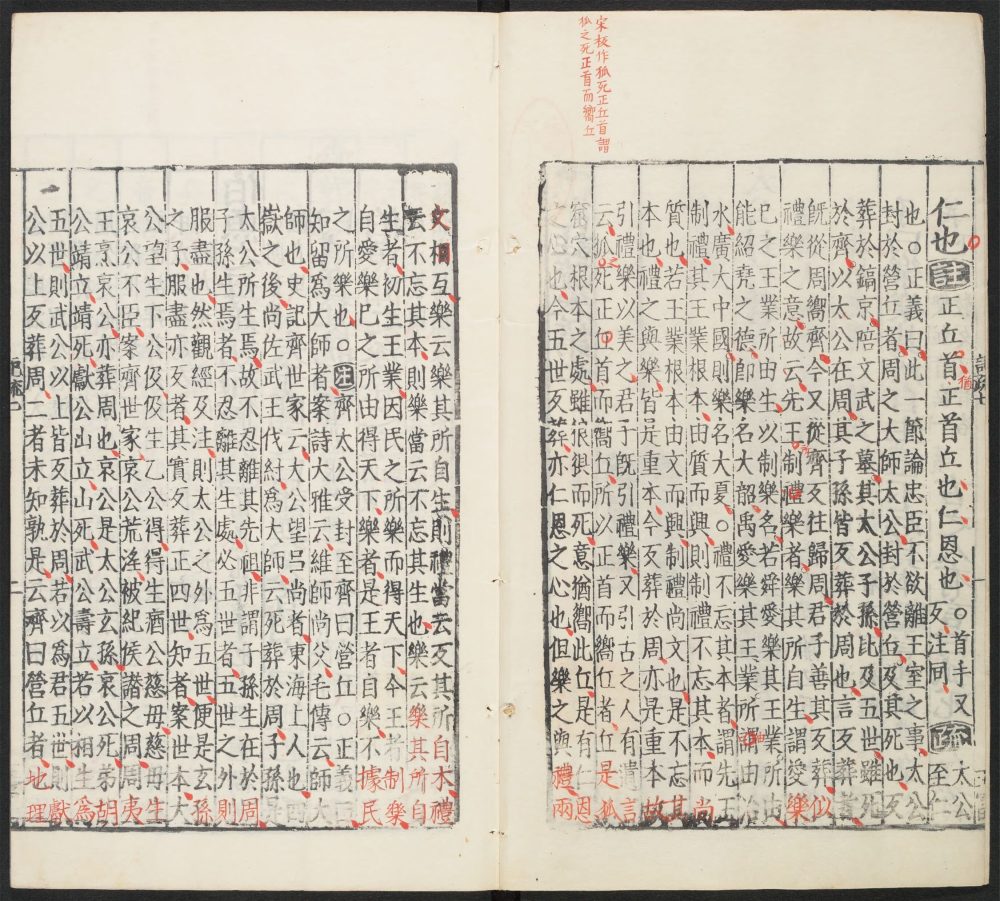 宋板作狐死正丘首謂
狐之死正首而嚮丘
仁也註正丘首正首丘也仁恩也○首手又反注同疏太公至仁
也○正義曰此一節論忠臣不欲離王室之事太公
封於營丘者周之大師太公封於營丘及其死也
葬於鎬京陪文武之墓其大公子孫比及五世雖死
於齊以太公在周其子孫皆反葬於周也言反葬
既從周嚮齊今又從齊反往歸周君子善其反葬似
禮樂之意故云先王制禮樂者樂其所自生謂愛樂
己之王業所由生以制樂名若舜愛樂其王業所由
能紹堯之德卽樂名大韶禹愛樂其王業所謂由治
水廣大中國則樂名大夏○禮不忘其本者謂先王
制禮其王業根本由質而興則制禮不忘其本而尚
質也若王業根本由文而興制禮尚文也是不忘其
本也禮之與樂皆是重本今反葬於周亦是重本故
引禮樂以美之君子既引禮樂又引古之人有遺言
云狐死正丘首而嚮丘所以正首而嚮丘者丘是狐
窟穴根本之處雖狼狽而死意猶嚮此丘是有仁恩
之心也今五世反葬亦仁恩之心也但樂之與禮兩
文相互樂云樂其所自生則禮當云反其所自本禮
云不忘其本則樂當云不忘其生也樂云樂其所自
生者初生王業因民之所樂而得天下今王者制樂
自愛樂己之所由得天下樂者是王者自樂不據民
之所樂也○注齊太公受封至齊曰營丘○正義曰
知留爲大師者案詩大雅云維師尚父毛傳云師大
師也史記齊世家云大公望呂尚者東海上人也四
嶽之後尚佐武王伐紂爲大師云死葬於周子孫是
太公所生焉故不忍離其先祖非謂子孫生在於周
子孫生焉者不忍離其生處必五世者五世之外則
服盡也然觀經及注則太公之外爲五世便是玄孫
之子服盡亦反者其實反葬正四世知者案世本大
公望生下公伋伋生乙公得得生㾗公慈母慈母生
哀公不臣案齊世家哀公荒淫被紀侯譖之周周夷
王烹哀公亦葬周也哀公是大公玄孫哀公死弟胡
公靖立靖死獻公山立山死武公壽立若以相生爲
五世則武公以上皆反葬於周若以爲君五世則獻
公以上反葬周二者未知孰是云齊曰營丘者地理